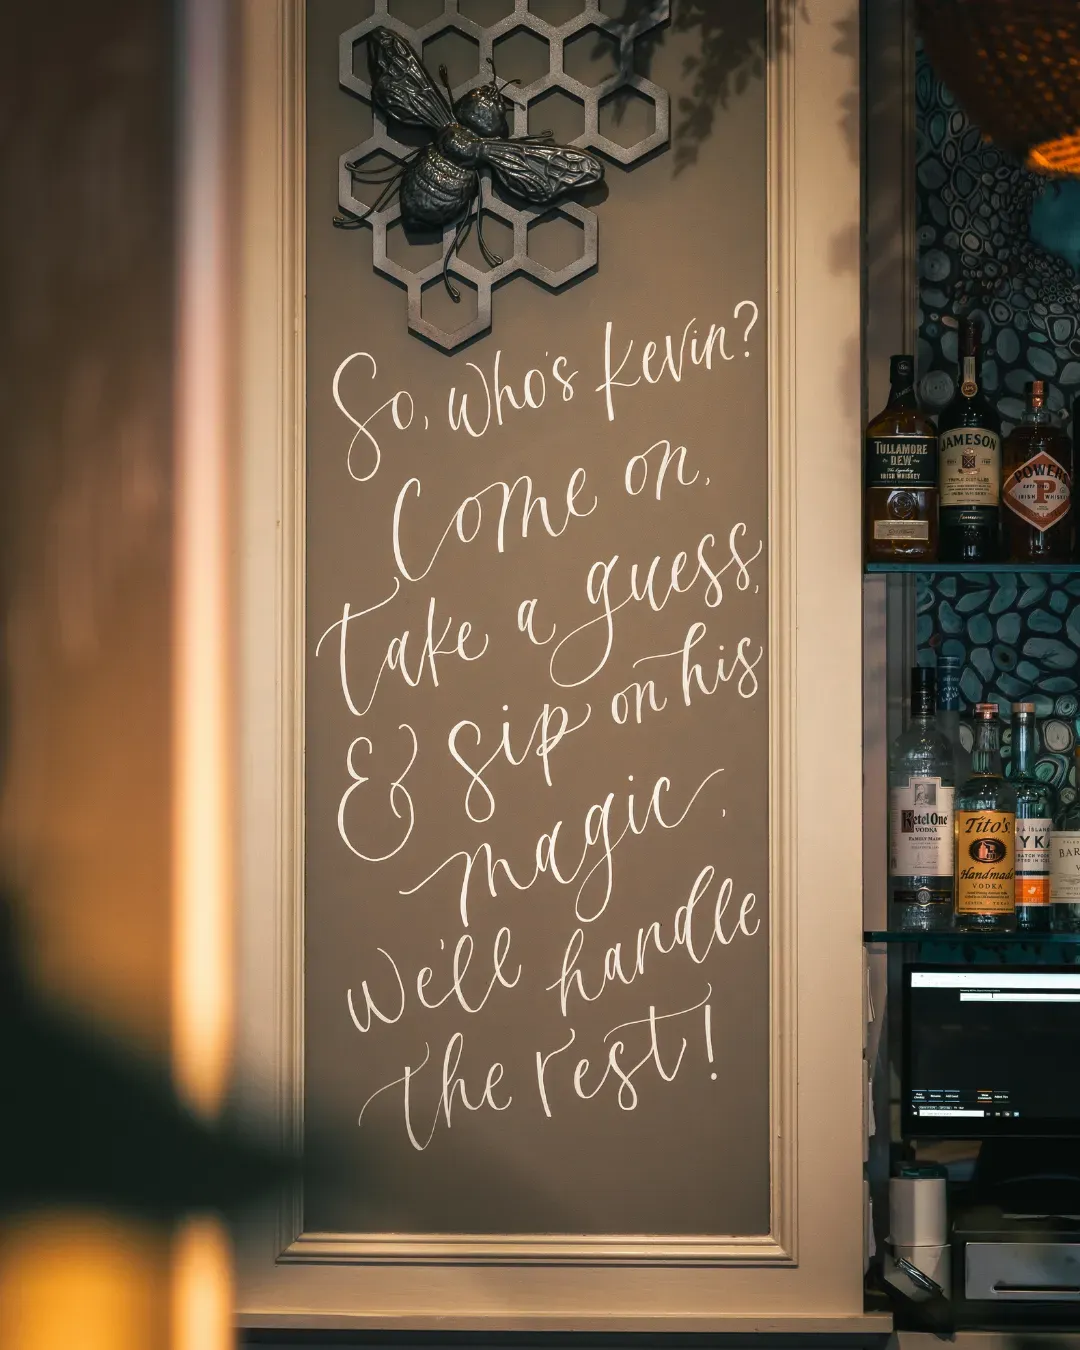 So, who's Kevin?
Come on,
take a guess,
& sip on his
magic.
We'll handle
the rest!
TULLAMORE
D.E.W.
IRISH WHISKEY
JAMESON
IRISH WHISKEY
POWERS
P
IRISH WHISKEY
Ketel One
VODKA
Tito's
Handmade
VODKA